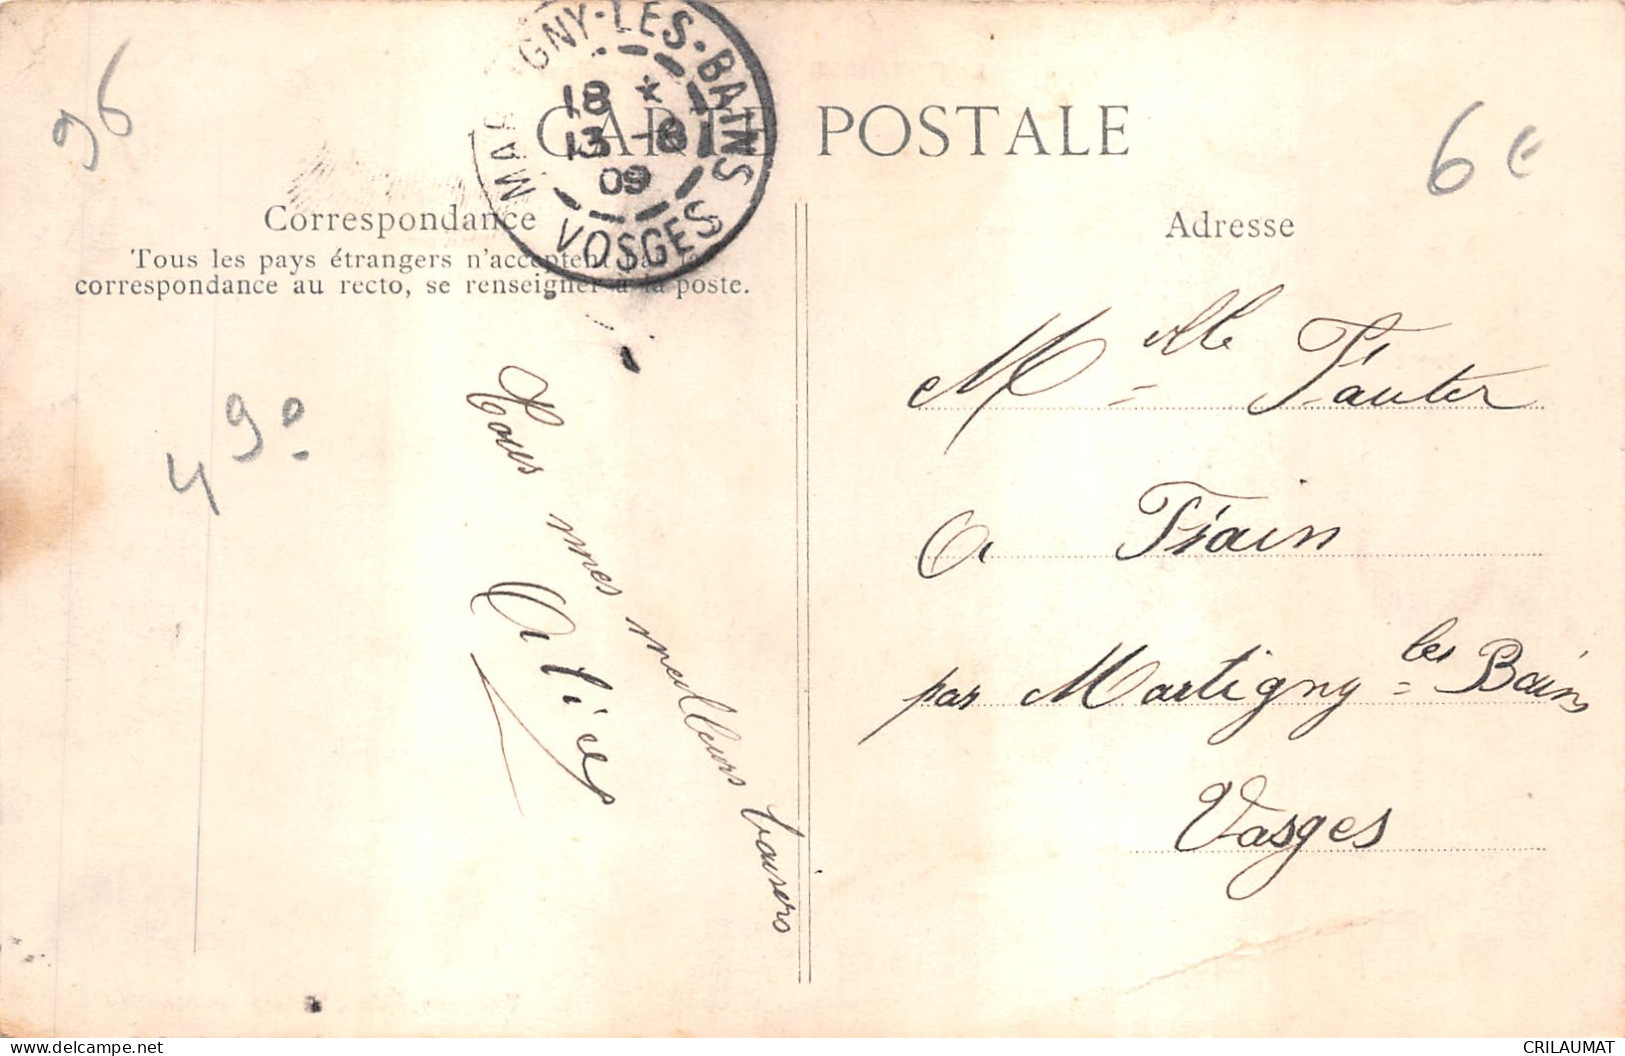 96
MARTIGNY-LES-BAINS
18 *
13 -6
09
VOSGES
CARTE POSTALE
6€
Correspondance
Tous les pays étrangers n'acceptent pas la
correspondance au recto, se renseigner à la poste.
Adresse
490
Tous mes meilleurs baisers
Alice
Melle Fauter
A
par Martigny les Bains
Vosges
CRILAUMAT